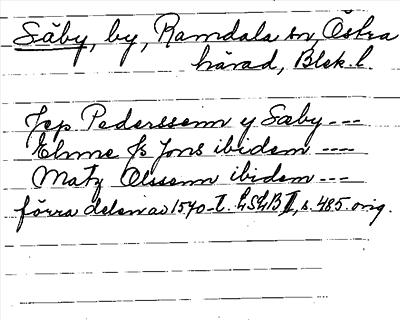 Säby, by, Ramdala sn, Östra
härad, Blek. l.
Jep Pederssenn y Sæby ---
Elmme Js Jons ibidem ----
Matz Olssenn ibidem ---
förra delen av 1540-t. LSLB II, s. 485. orig.